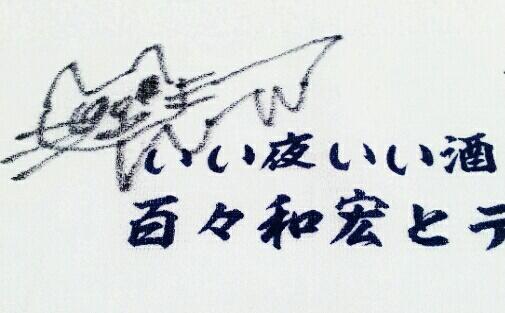 いい夜いい酒
百々和宏とテ